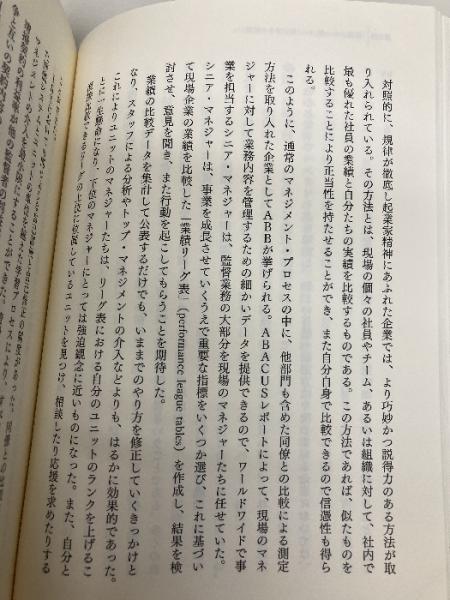 対照的に、規律が徹底し起業家精神にあふれた企業では、より巧妙かつ説得力のある方法が取
り入れられている。その方法とは、現場の個々の社員やチーム、あるいは組織に対して、社内で
最も優れた社員の業績と自分たちの実績を比較するものである。この方法であれば、似たものを
比較することにより正当性を持たせることができ、また自分自身で比較できるので信憑性も得ら
れる。
このように、通常のマネジメント・プロセスの中に、他部門も含めた同僚との比較による測定
方法を取り入れた企業としてABBが挙げられる。ABACUSレポートによって、現場のマネ
ジャーに対して業務内容を管理するための細かいデータを提供できるので、ワールドワイドで事
業を担当するシニア・マネジャーは、監督業務の大部分を現場のマネジャーたちに任せていた。
シニア・マネジャーは、事業を成長させていくうえで重要な指標をいくつか選び、これに基づい
て現場企業の業績を比較した「業績リーグ表」(performance league tables) を作成し、結果を検
討させ、意見を聞き、また行動を起こしてもらうことを期待した。
業績の比較データを集計して公表するだけでも、いままでのやり方を修正していくきっかけと
なり、スタッフによる分析やトップ・マネジメントの介入などよりも、はるかに効果的であった。
これによりユニットのマネジャーたちは、リーグ表における自分のユニットのランクを上げるこ
とに一生懸命になり、下位のマネジャーにとっては強迫観念に近いものになった。また、自分と
直接比較できるリーグの上位に位置しているユニットを見つけ、相談したり応援を求めたりする